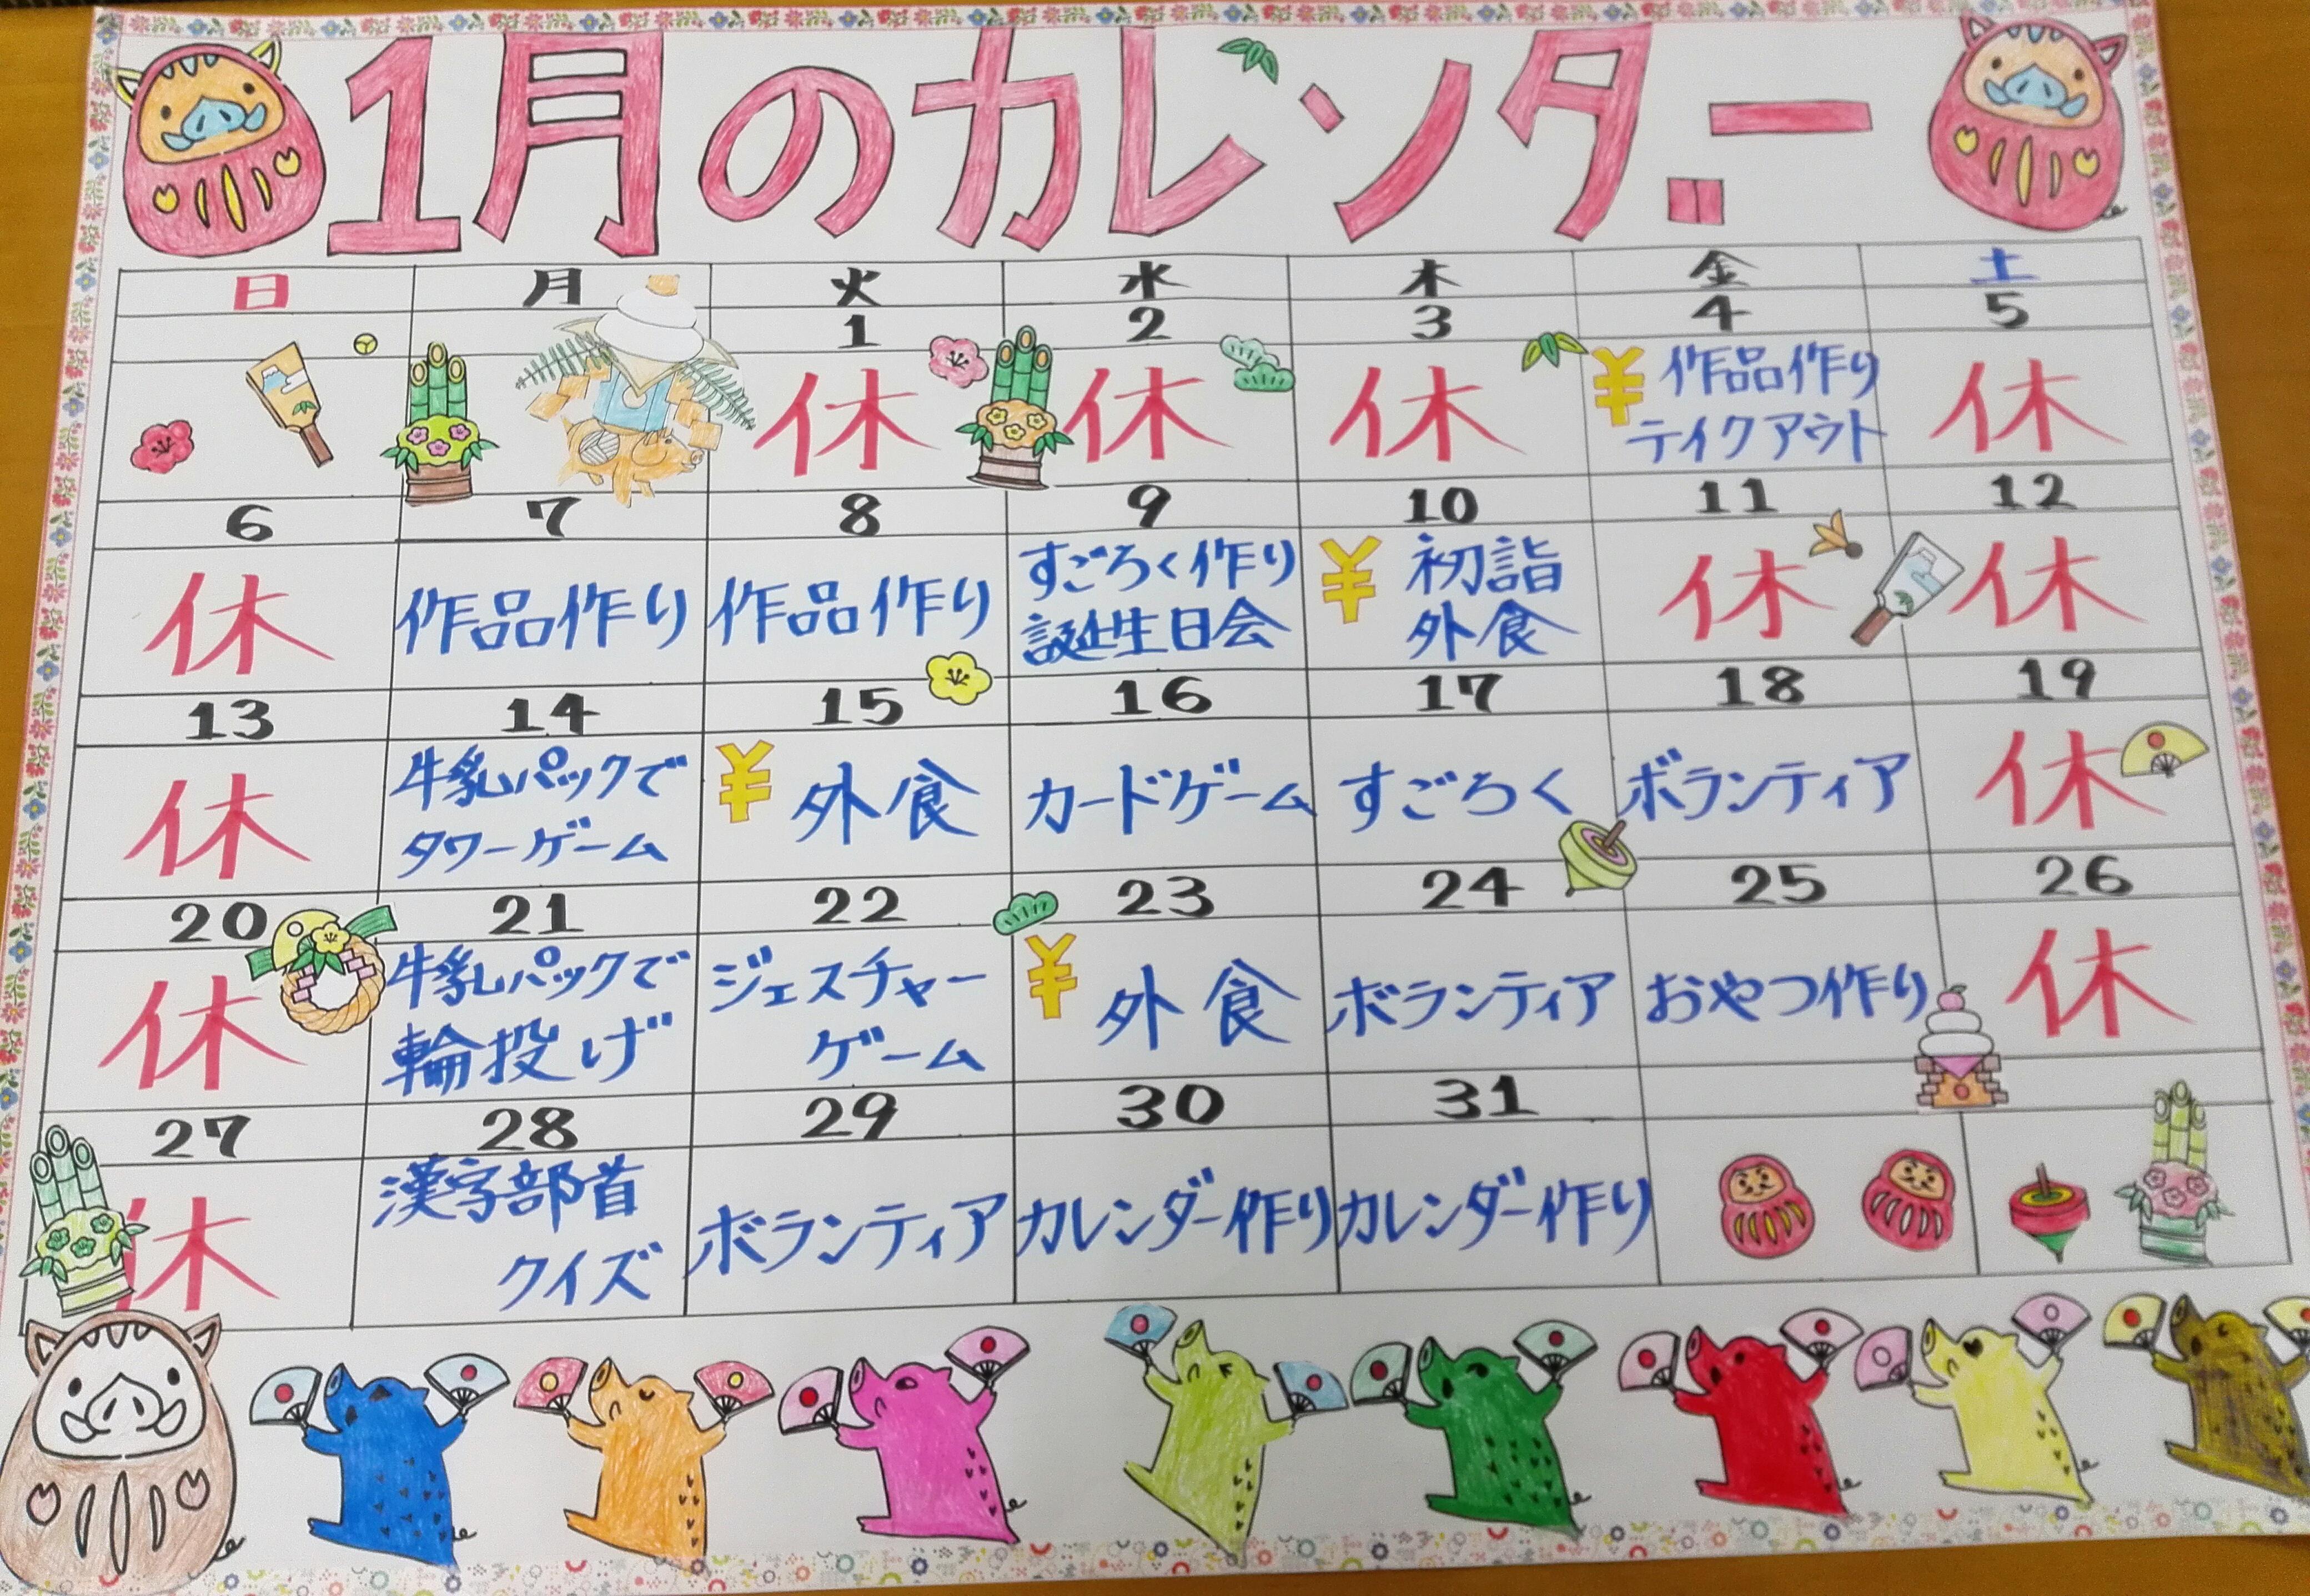 1月のカレンダー
日 月 火 水 木 金 土
1 2 3 4 5
休 休 休 ¥ 作品作り 休
テイクアウト
6 7 8 9 10 11 12
休 作品作り 作品作り すごろく作り ¥ 初詣 休 休
誕生日会 外食
13 14 15 16 17 18 19
休 牛乳パックで ¥ 外食 カードゲーム すごろく ボランティア 休
タワーゲーム
20 21 22 23 24 25 26
休 牛乳パックで ジェスチャー ¥ 外食 ボランティア おやつ作り 休
輪投げ ゲーム
27 28 29 30 31
休 漢字部首 ボランティア カレンダー作り カレンダー作り
クイズ